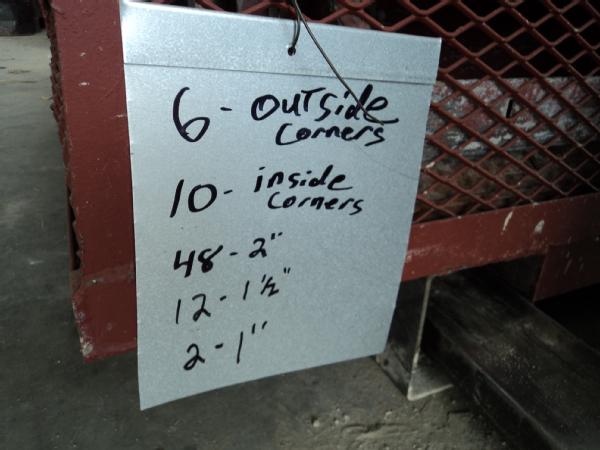 6 - outside
corners
10 - inside
corners
48 - 2"
12 - 1 1/2"
2 - 1"